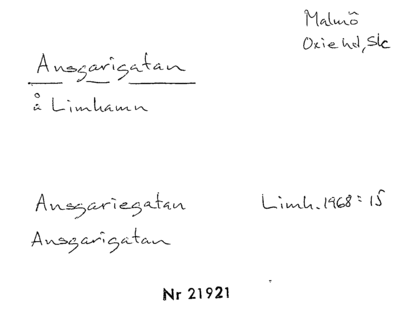 Malmö
Oxie hd, Sk
Ansgarigatan
å Limhamn
Ansgariegatan Limh. 1968: 15
Ansgarigatan
Nr 21921